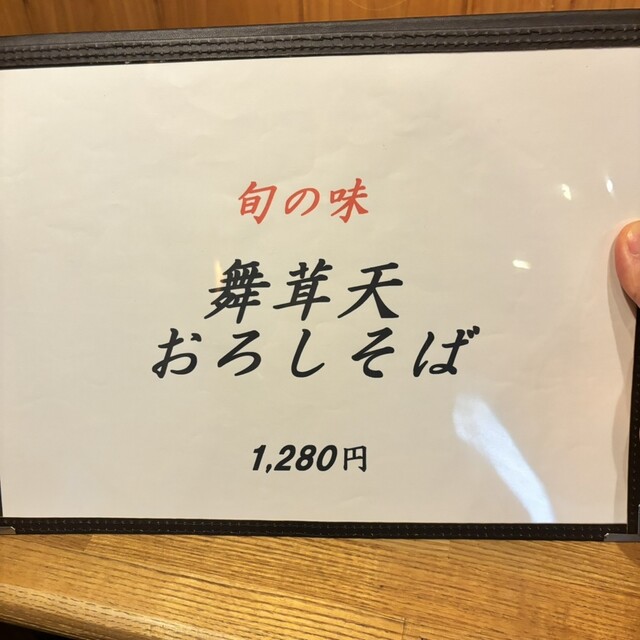 旬の味
舞茸天
おろしそば
1,280円